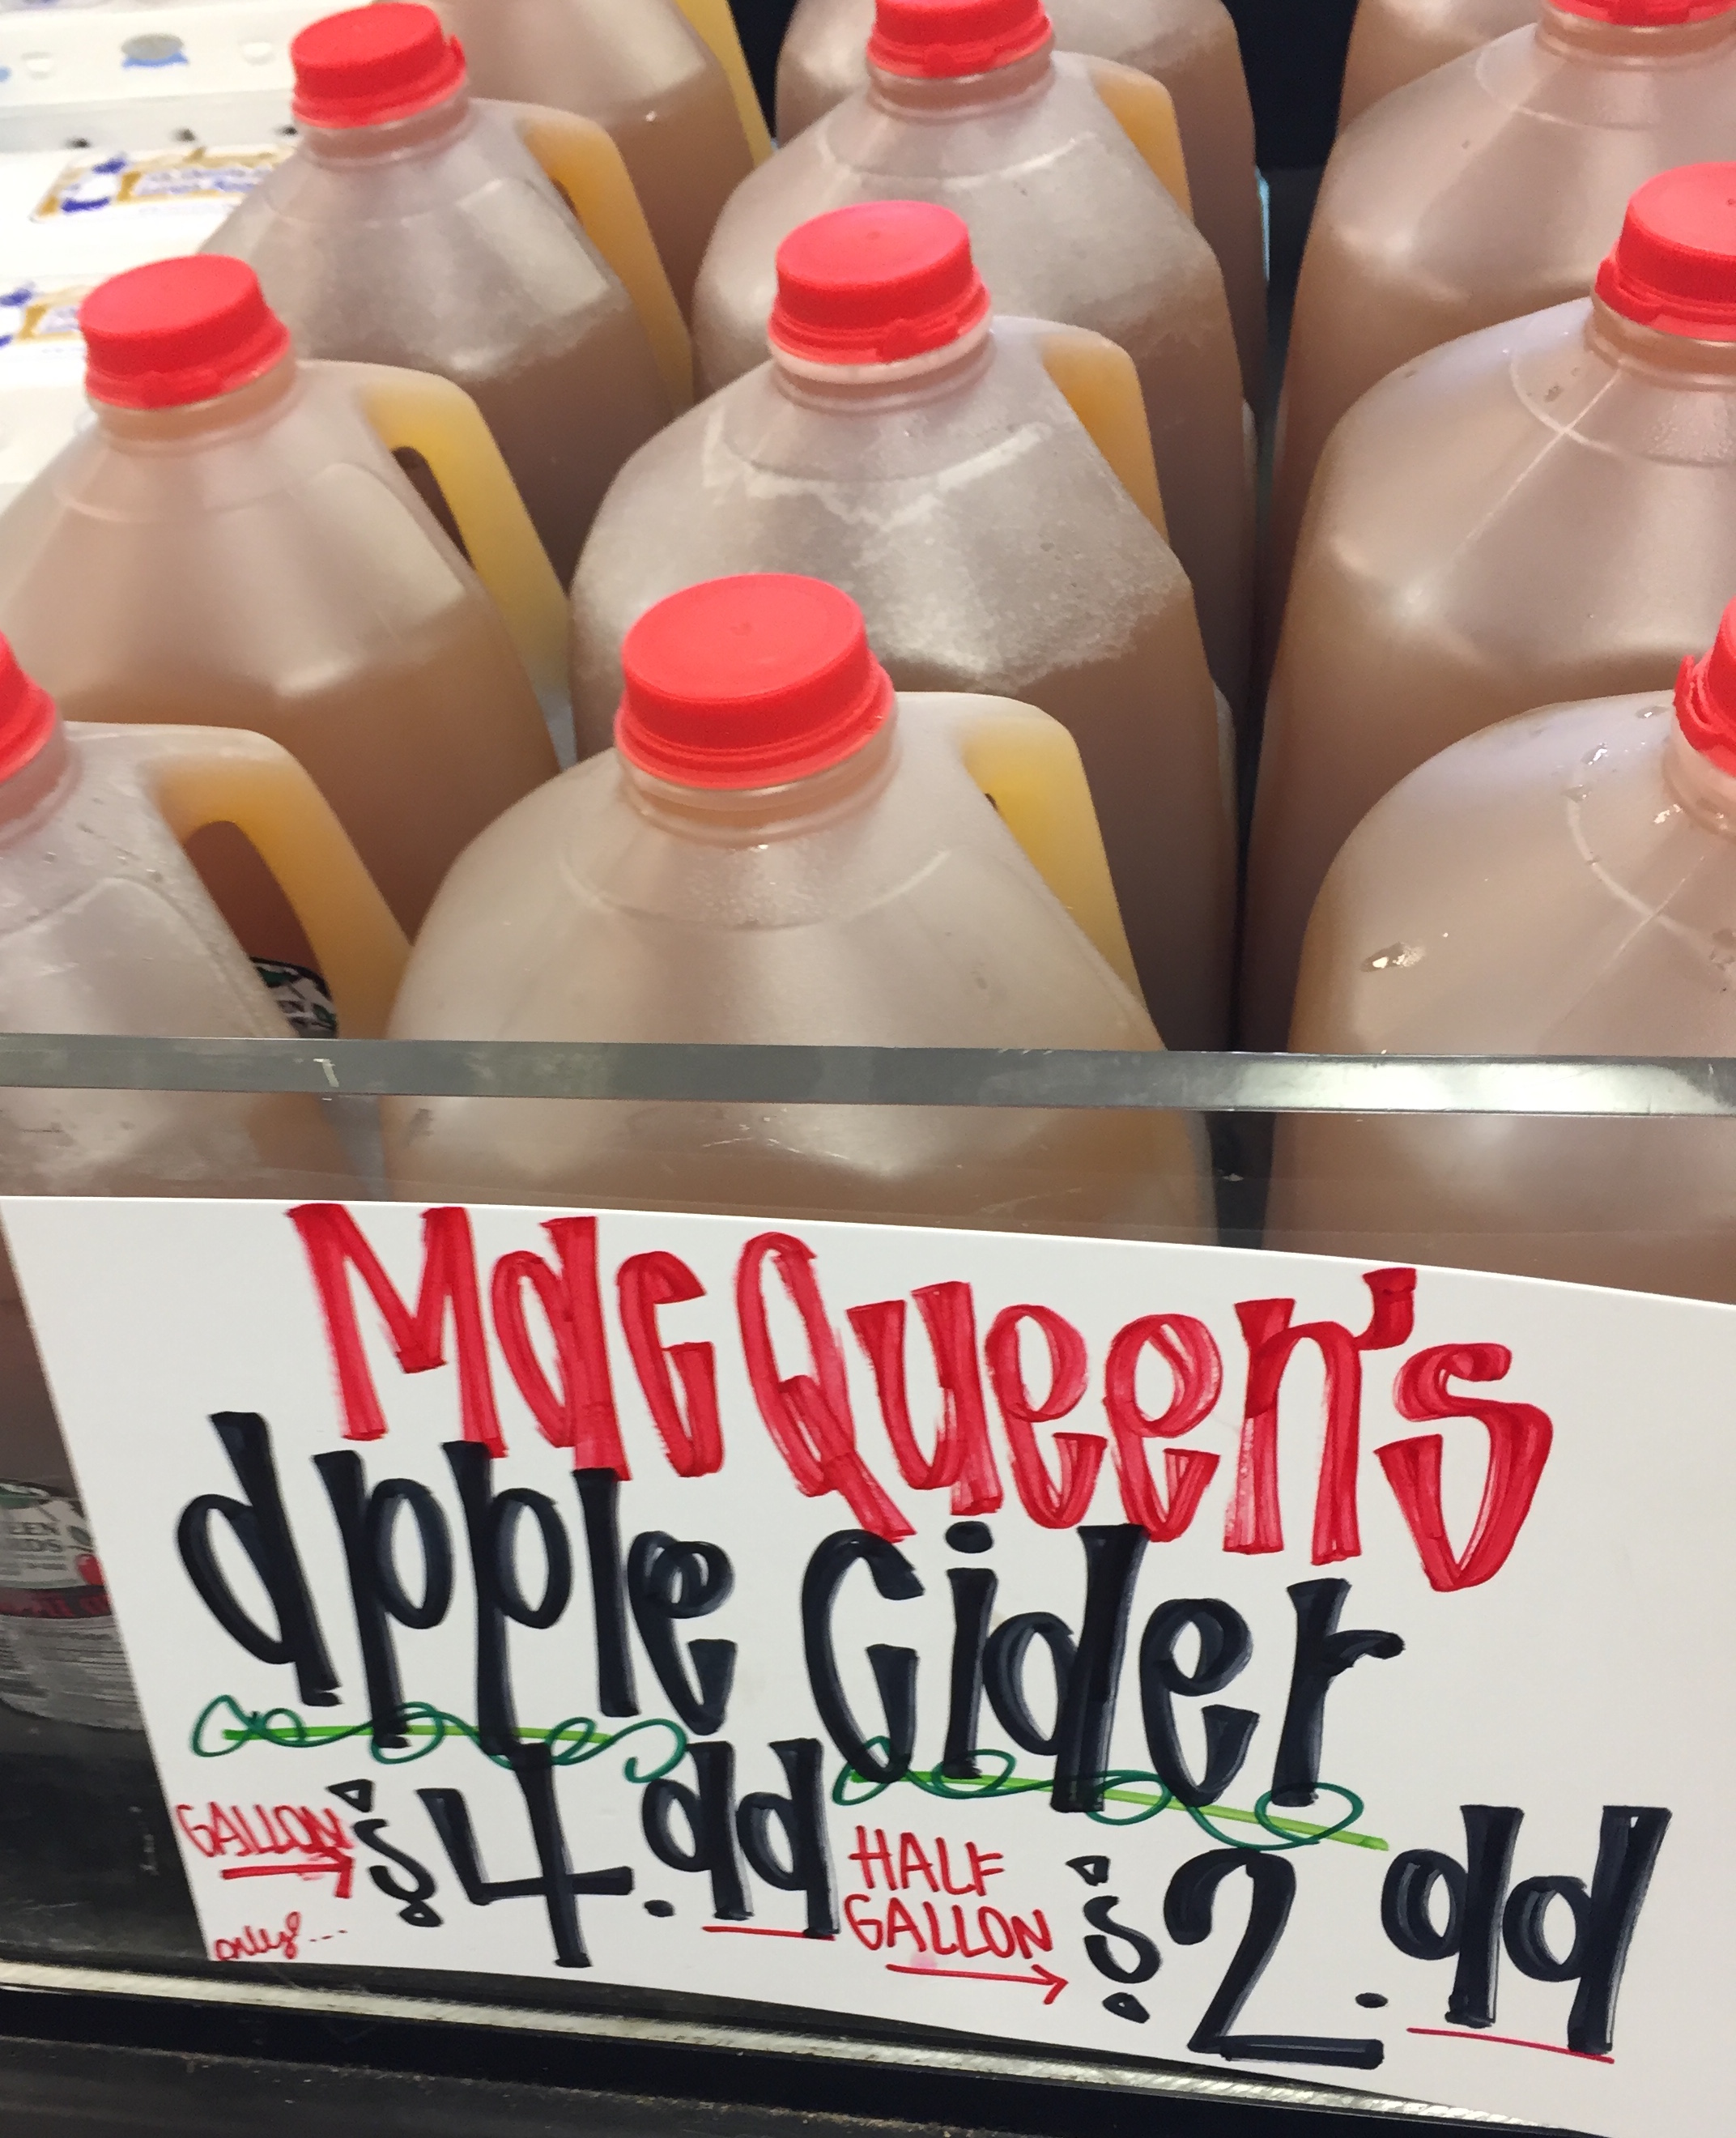 MacQueen's
apple Cider
GALLON $4.99
only!...
HALF
GALLON $2.99